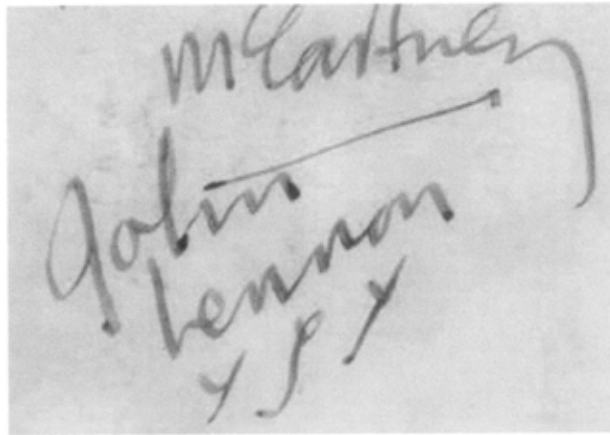 McCartney
John
Lennon